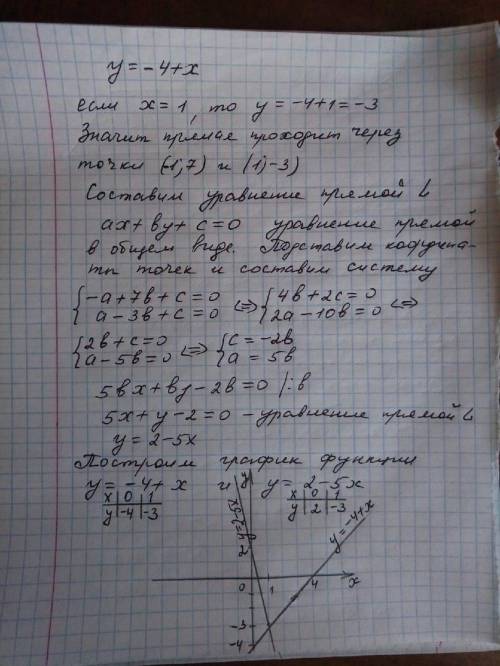 y = -4+x
если x=1, то y = -4+1 = -3
Значит прямая проходит через
точки (-1;7) и (1;-3)
Составим уравнение прямой L
ax+by+c=0 уравнение прямой
в общем виде. Подставим координа-
ты точек и составим систему
{-a+7b+c=0 <=> {4b+2c=0 <=>
{a-3b+c=0 {2a-10b=0
{2b+c=0 <=> {c=-2b
{a-5b=0 {a=5b
5bx+by-2b=0 |:b
5x+y-2=0 - уравнение прямой L
y=2-5x
Построим график функции
y=-4+x и y=2-5x
x 0 1
y -4 -3
x 0 1
y 2 -3
y
y=2-5x
y=-4+x
2
0 1 4 x
-3
-4